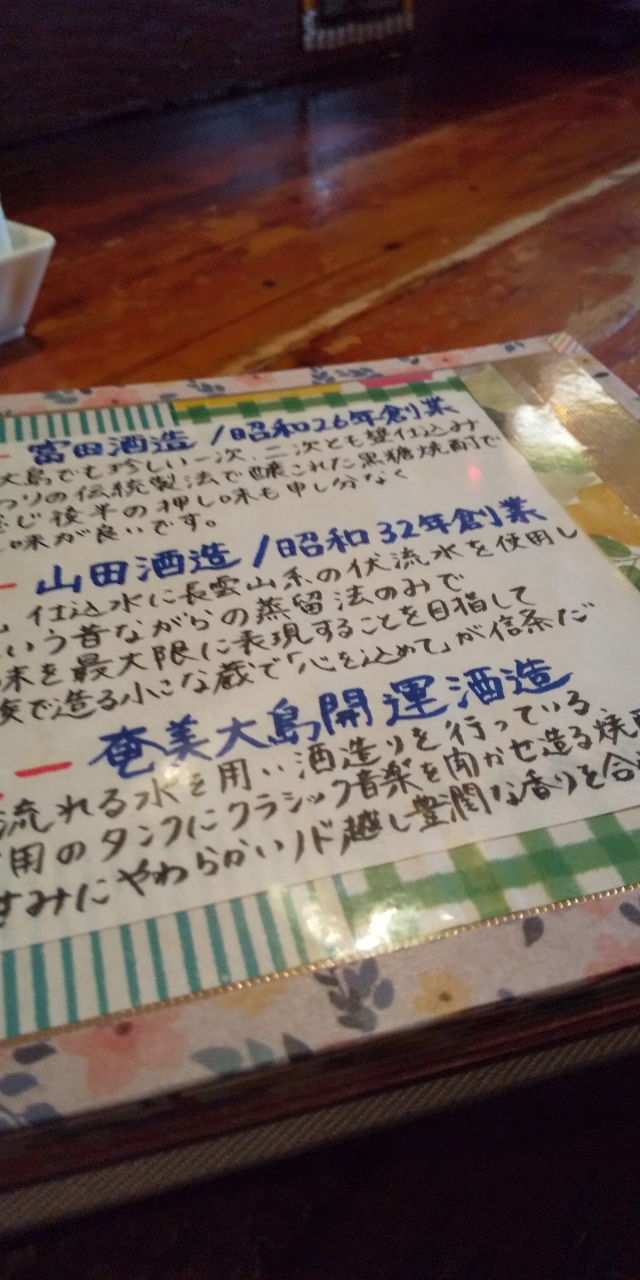 富田酒造 /昭和26年創業
大島でも珍しい一次、二次とも甕仕込み
つりの伝統製法で醸された黒糖焼酎で
じ後半の押し味も申し分なく
味が良いです。
山田酒造 /昭和32年創業
仕込水に長雲山系の伏流水を使用し
いう昔ながらの蒸留法のみで
味を最大限に表現することを目指して
族で造る小さな蔵で「心を込めて」が信条だ
奄美大島開運酒造
流れる水を用い酒造りを行っている、
用のタンクにクラシック音楽を聞かせ造る焼酎
すみにやわらかいノド越し豊潤な香りを合